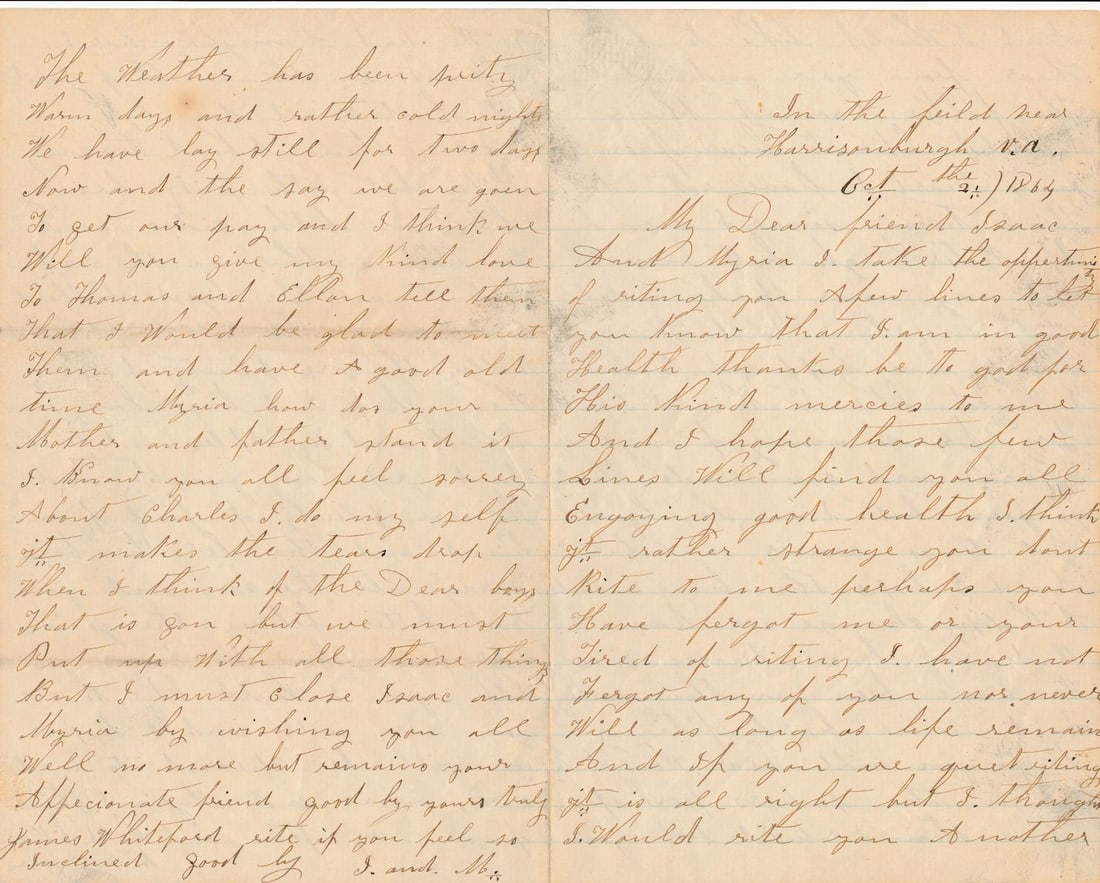 In the feild near
Harrisonburgh v.a.
Oct the 21 ) 1864
My Dear friend Isaac
And Myria I. take the opportunity
of riting you A few lines to let
you Know that I. am in good
Health thanks be to god for
His Kind mercies to me
And I hope those few
Lines Will find you all
Engoying good health I. think
it rather strange you dont
Rite to me perhaps you
Have fergot me or your
Tired of riting I. have not
Fergot any of you nor never
Will as long as life remain
And If you are quet riting
it is all right but I. though
I. Would rite you Another
The Weather has been prity
Warm days and rather cold nights
We have lay still for two days
Now and the say we are goen
To get our pay and I think we
Will you give my Kind love
To Thomas and Ellan tell them
That I Would be glad to meet
Them and have A good old
time Myria how dos your
Mother and father stand it
I. Know you all feel sorrey
About Charles I. do my self
it makes the tears drop
When I think of the Dear boys
That is gon but we must
Put up With all those things
But I must close Isaac and
Myria by wishing you all
Well no more but remains your
Affecionate friend good by yours truly
James Whiteford rite if you feel so
Inclined good by I. and. M.